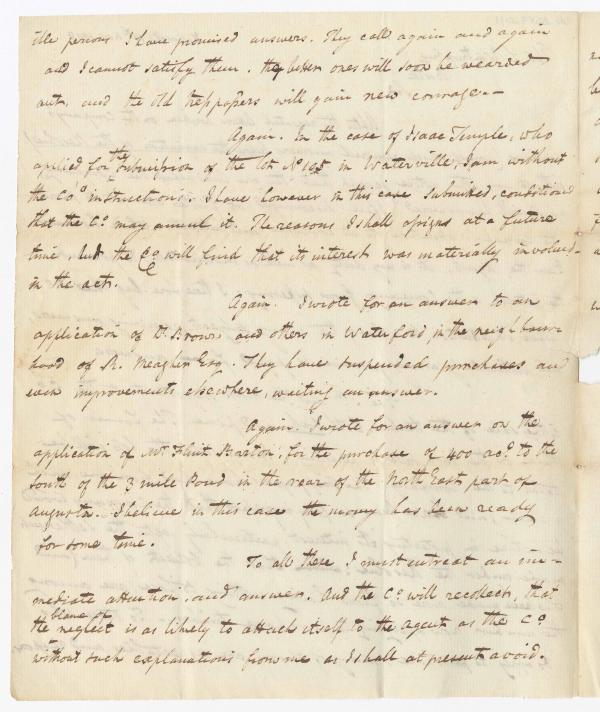 persons I have promised answers. They call again and again
and I cannot satisfy them. the better ones will soon be wearied
out, and the old trespassers will gain new courage.—
Again. In the case of Isaac Temple, who
applied for the submission of the lot No 105 in Waterville, I am without
the Co.s instructions. I have however in this case submitted, conditioned
that the Co. may annul it. The reasons I shall assign at a future
time. And the Co. will find that its interest was materially involved
in the act.
Again. I wrote for an answer to an
application of Dr Brown and others in Waterford, in the neighbour-
hood of R. Meagher Esq. They have suspended purchases and
even improvements elsewhere, waiting an answer.
Again. I wrote for an answer on the
application of Mr Flint Barton, for the purchase of 400 acs. to the
South of the 3 mile Pond in the rear of the North East part of
Augusta. I believe in this case the money has been ready
for some time.
To all these I must entreat an im-
mediate attention, and answer. And the Co. will recollect, that
the blame of neglect is as likely to attach itself to the Agent as the Co.
without such explanations from me as I shall at present avoid.